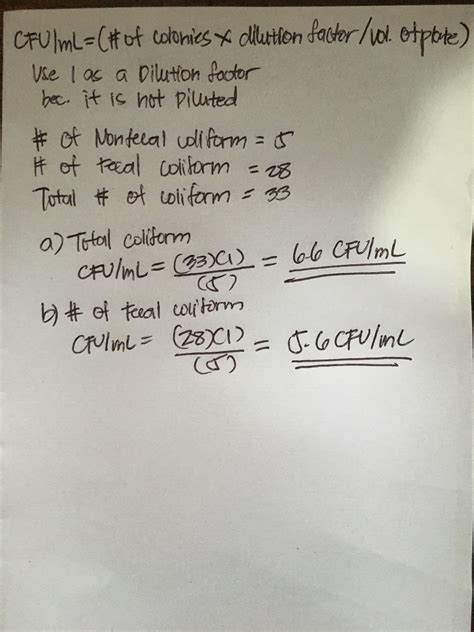 CFU/mL=(# of colonies x dilution factor/vol. of plate)
Use 1 as a Dilution factor
bec. it is not Diluted
# of Nonfecal coliform = 5
# of fecal coliform = 28
Total # of coliform = 33
a) Total coliform
CFU/mL = (33)(1) / (5) = 6.6 CFU/mL
b) # of fecal coliform
CFU/mL = (28)(1) / (5) = 5.6 CFU/mL